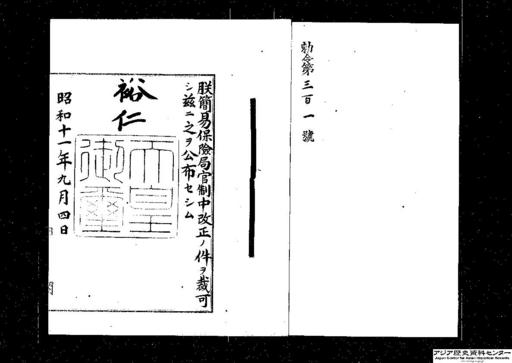 勅令第三百一號
朕簡易保險局官制中改正ノ件ヲ裁可
シ茲ニ之ヲ公布セシム
裕仁
天皇御璽
昭和十一年九月四日
アジア歴史資料センター
Japan Center for Asian Historical Records